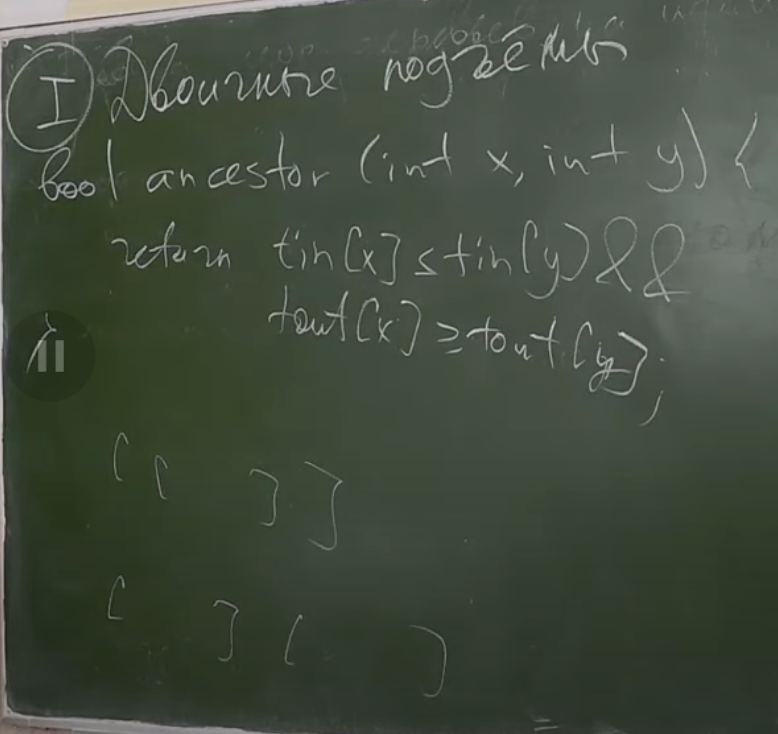 I Двоичные подъёмы
bool ancestor (int x, int y) {
return tin[x] ≤ tin[y] &&
tout[x] ≥ tout[y];
}
[ [ ] ]
[ ] [ ]